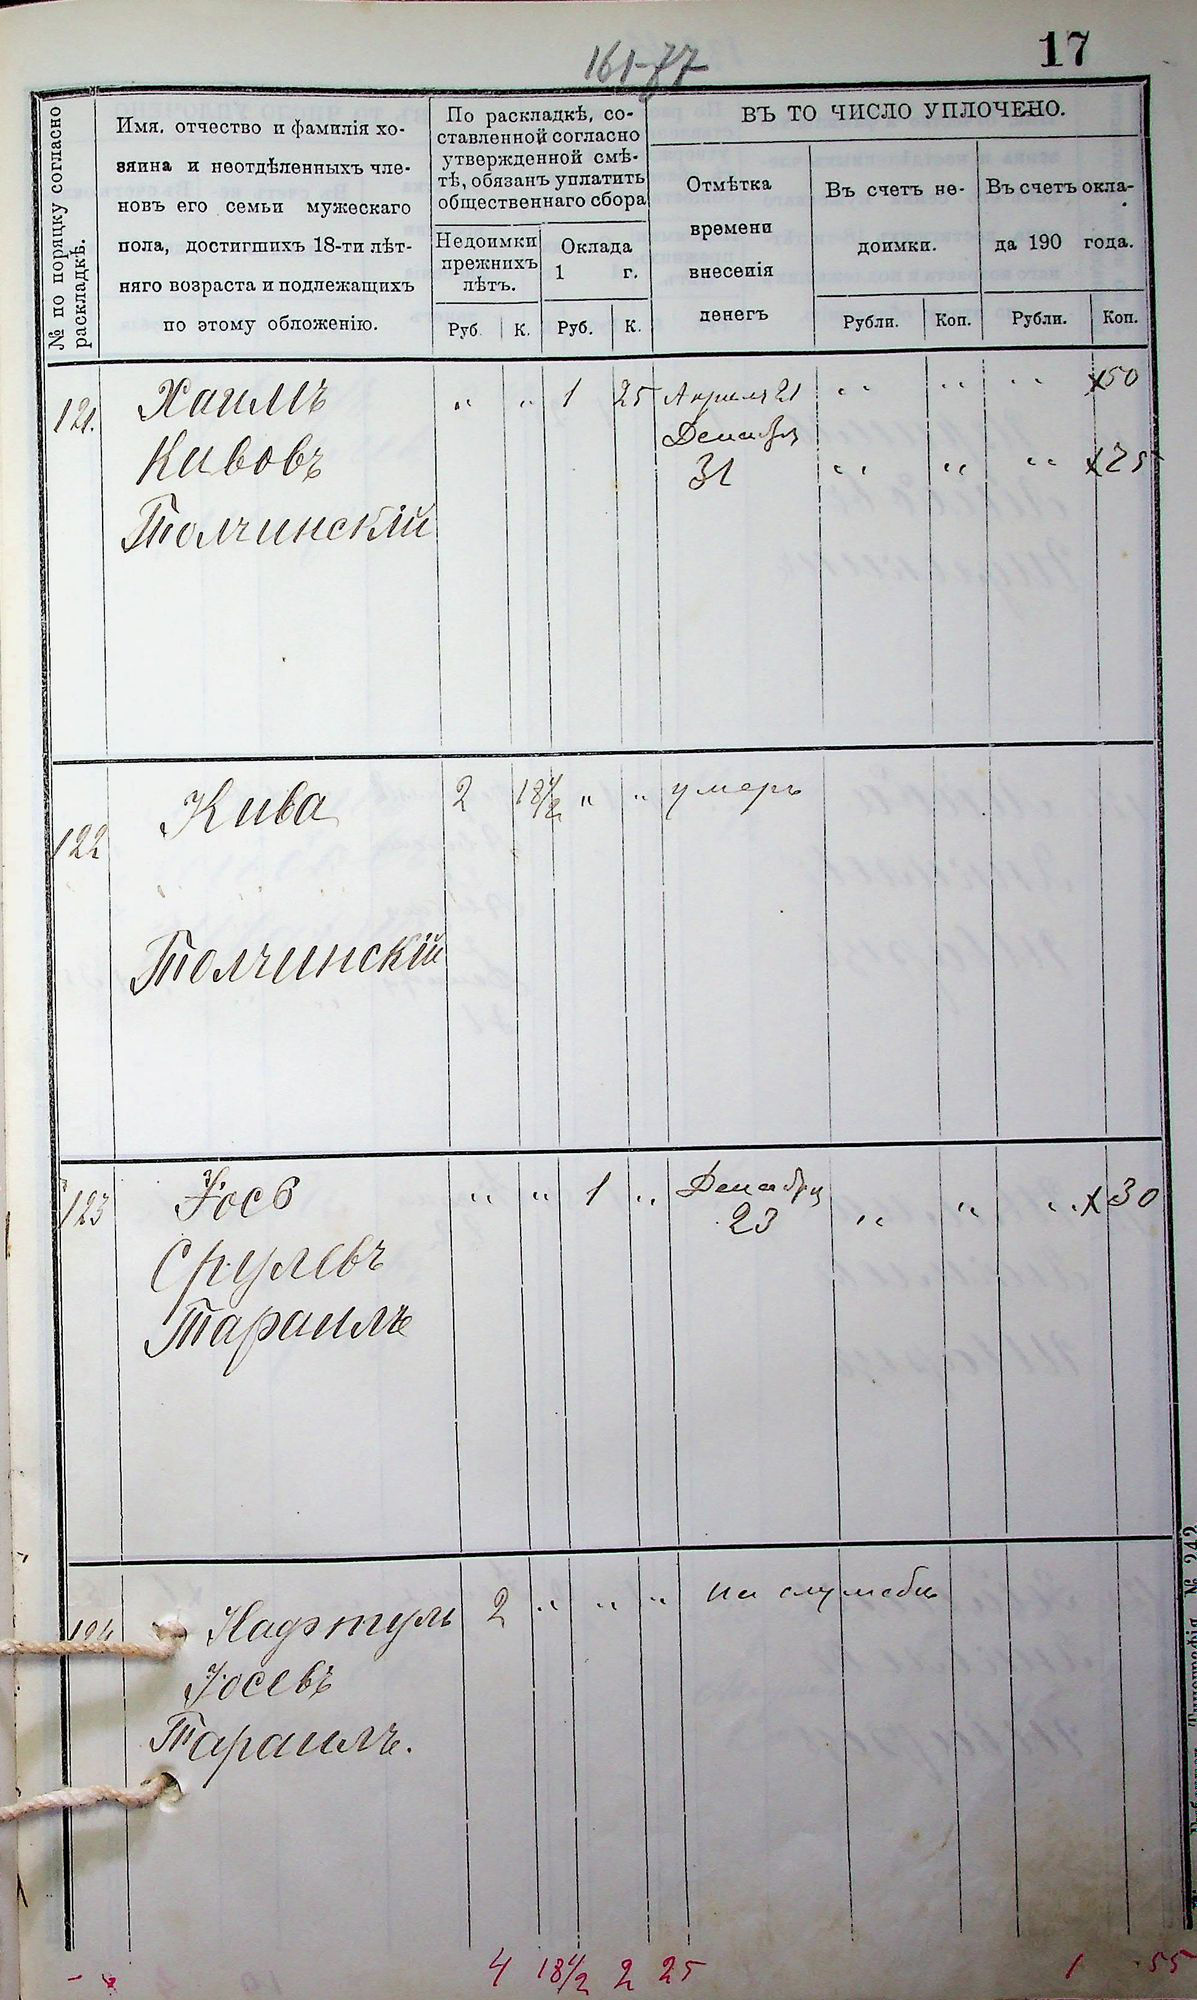 161-77
17
№ по порядку согласно раскладкѣ.
Имя, отчество и фамилія хо-
зяина и неотдѣленныхъ чле-
новъ его семьи мужескаго
пола, достигшихъ 18-ти лѣт-
няго возраста и подлежащихъ
по этому обложенію.
По раскладкѣ, со-
ставленной согласно
утвержденной смѣ-
тѣ, обязанъ уплатить
общественнаго сбора
Недоимки
прежнихъ
лѣтъ.
Оклада
1 г.
Руб. К. Руб. К.
ВЪ ТО ЧИСЛО УПЛОЧЕНО.
Отмѣтка
времени
внесенія
денегъ
Въ счетъ не-
доимки.
Въ счетъ окла-
да 190 года.
Рубли. Коп. Рубли. Коп.
121. Хаимъ „ „ 1 25 Апрѣля 21 „ „ „ х50
Кивовъ Декабря
31 „ „ „ х25
Толчинскій
122 Кива 2 18 1/2 „ „ умеръ
Толчинскій
123 Іосъ „ „ 1 „ Декабря
23 „ „ „ х30
Срулевъ
Тараилъ
124 Нафтуль 2 „ „ „ на службѣ
Іосевъ
Тараилъ.
4 18 1/2 2 25 1 55
Типографія № 242